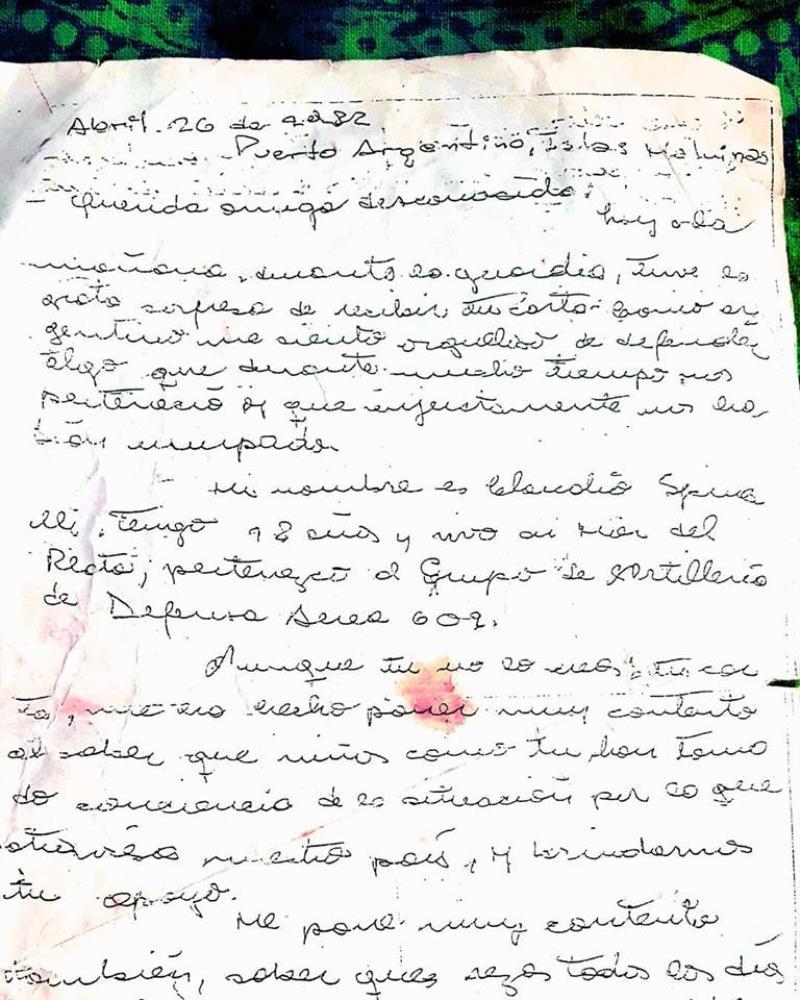 Abril 26 de 1982
Puerto Argentino, Islas Malvinas
Querida amiga desconocida:
hoy a la
mañana, durante la guardia, tuve la
grata sorpresa de recibir tu carta. Como ar
gentino me siento orgulloso de defender
algo que durante mucho tiempo nos
perteneció y que injustamente nos ha
bían usurpado.
Mi nombre es Claudio Spina
lli, tengo 18 años y vivo en Mar del
Plata, pertenezco al Grupo de Artilleria
de Defensa Aerea 602.
Aunque tu no lo creas, tu car
ta, me ha hecho poner muy contento
al saber que niños como tu han toma
do conciencia de la situación por la que
atraviesa nuestro país, y brindarnos
tu apoyo.
Me pone muy contento
también, saber que rezas todos los días